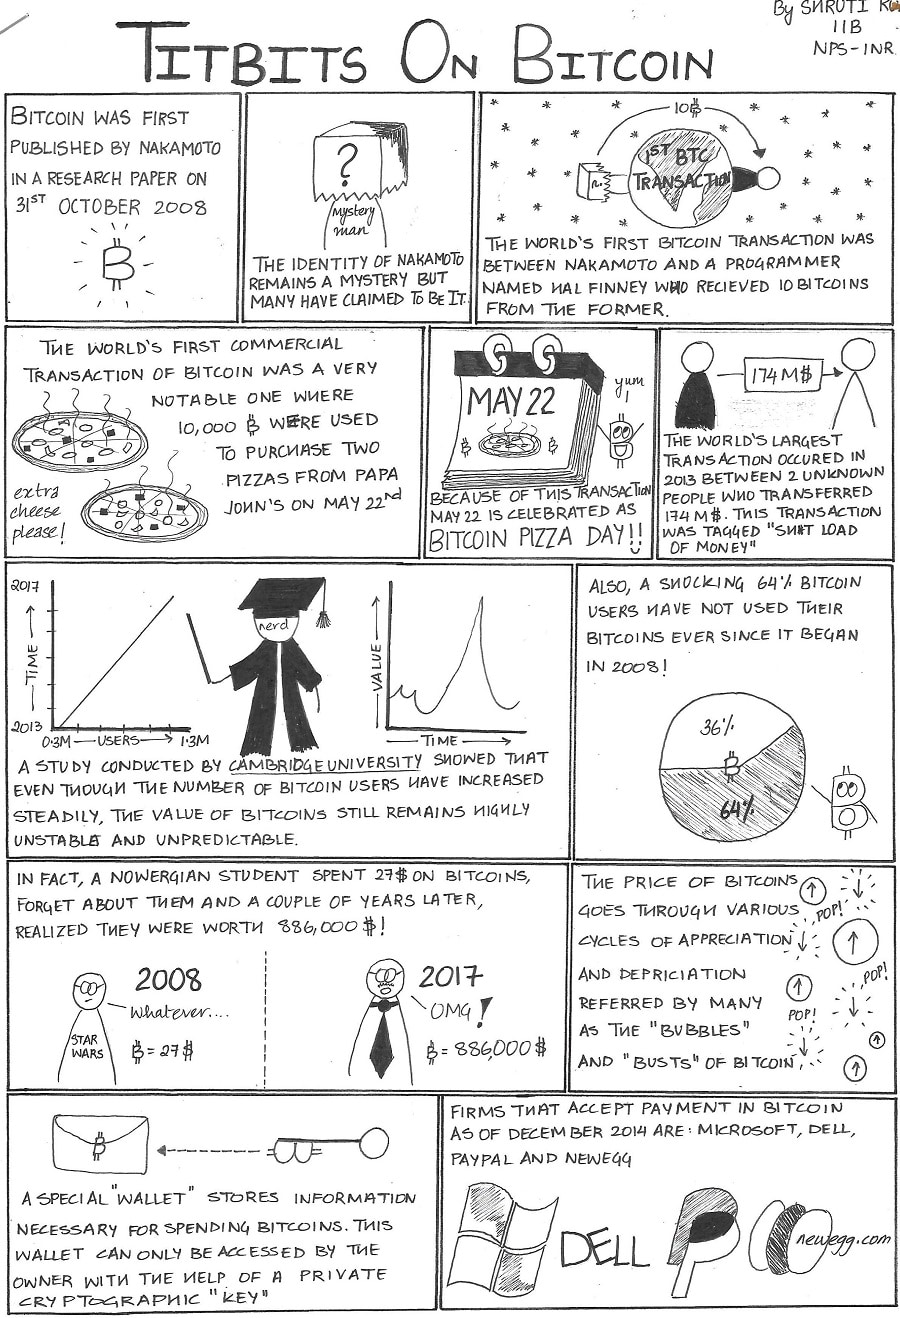 By SHRUTI
11B
NPS-INR
TITBITS ON BITCOIN
BITCOIN WAS FIRST
PUBLISHED BY NAKAMOTO
IN A RESEARCH PAPER ON
31ST OCTOBER 2008
?
mystery
man
THE IDENTITY OF NAKAMOTO
REMAINS A MYSTERY BUT
MANY HAVE CLAIMED TO BE IT.
10₿
1ST BTC
TRANSACTION
?
THE WORLD'S FIRST BITCOIN TRANSACTION WAS
BETWEEN NAKAMOTO AND A PROGRAMMER
NAMED HAL FINNEY WHO RECIEVED 10 BITCOINS
FROM THE FORMER.
THE WORLD'S FIRST COMMERCIAL
TRANSACTION OF BITCOIN WAS A VERY
NOTABLE ONE WHERE
10,000 ₿ WERE USED
TO PURCHASE TWO
PIZZAS FROM PAPA
JOHN'S ON MAY 22nd
extra
cheese
please!
MAY 22
₿ ₿
yum
!
BECAUSE OF THIS TRANSACTION
MAY 22 IS CELEBRATED AS
BITCOIN PIZZA DAY!!
174M$
THE WORLD'S LARGEST
TRANSACTION OCCURED IN
2013 BETWEEN 2 UNKNOWN
PEOPLE WHO TRANSFERRED
174 M$. THIS TRANSACTION
WAS TAGGED "SH*T LOAD
OF MONEY"
2017
TIME
2013
0.3M USERS 1.3M
nerd
VALUE
TIME
A STUDY CONDUCTED BY CAMBRIDGE UNIVERSITY SHOWED THAT
EVEN THOUGH THE NUMBER OF BITCOIN USERS HAVE INCREASED
STEADILY, THE VALUE OF BITCOINS STILL REMAINS HIGHLY
UNSTABLE AND UNPREDICTABLE.
ALSO, A SHOCKING 64% BITCOIN
USERS HAVE NOT USED THEIR
BITCOINS EVER SINCE IT BEGAN
IN 2008!
36%
₿
64%
IN FACT, A NOWERGIAN STUDENT SPENT 27$ ON BITCOINS,
FORGET ABOUT THEM AND A COUPLE OF YEARS LATER,
REALIZED THEY WERE WORTH 886,000 $!
2008
Whatever....
STAR
WARS
₿ = 27 $
2017
OMG!
₿ = 886,000 $
THE PRICE OF BITCOINS
GOES THROUGH VARIOUS
CYCLES OF APPRECIATION
AND DEPRICIATION
REFERRED BY MANY
AS THE "BUBBLES"
AND "BUSTS" OF BITCOIN
POP!
POP!
POP!
₿
A SPECIAL "WALLET" STORES INFORMATION
NECESSARY FOR SPENDING BITCOINS. THIS
WALLET CAN ONLY BE ACCESSED BY THE
OWNER WITH THE HELP OF A PRIVATE
CRYPTOGRAPHIC "KEY"
FIRMS THAT ACCEPT PAYMENT IN BITCOIN
AS OF DECEMBER 2014 ARE: MICROSOFT, DELL,
PAYPAL AND NEWEGG
DELL
newegg.com